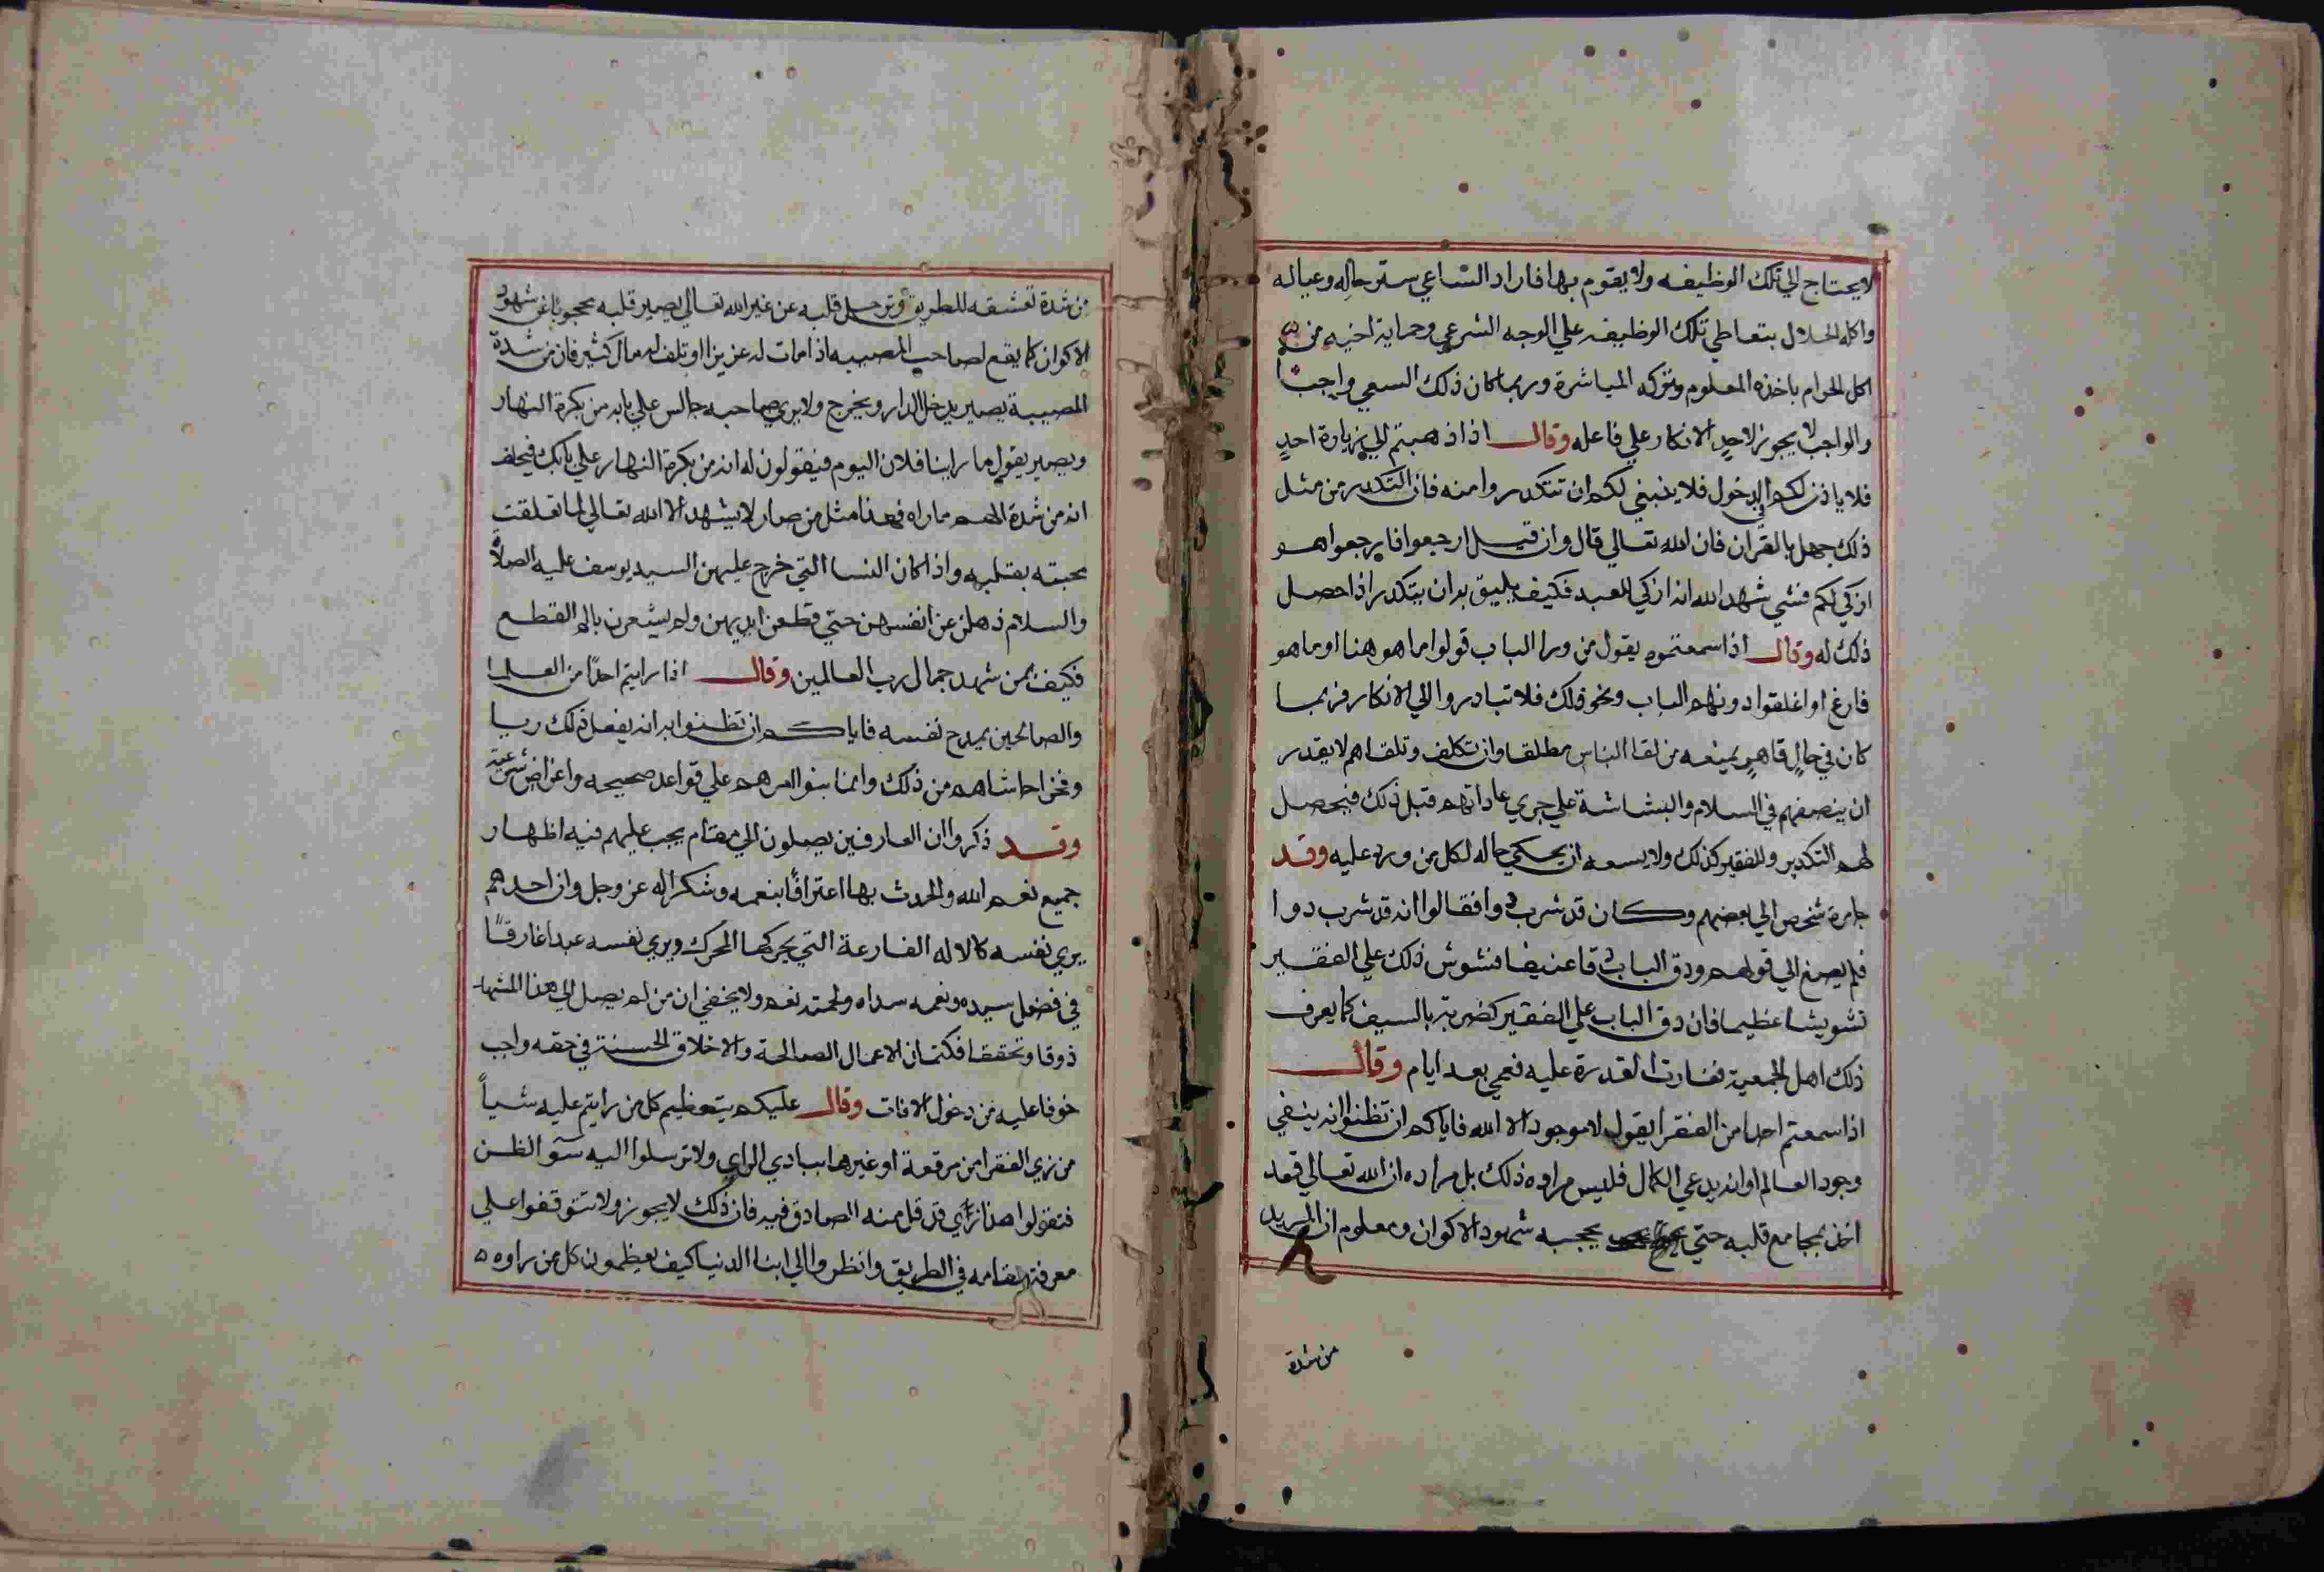 لا يحتاج الي تلك الوظيفه ولا يقوم بها فاراد الساعي ستر حاله وعياله
واكله الحلال بتعاطي تلك الوظيفه علي الوجه الشرعي وحماية اخيه من
اكل الحرام باخذه المعلوم وتركه المباشرة وربما كان ذلك السعي واجبا
والواجب لا يجوز لاحد الانكار علي فاعله وقال اذا ذهبتم الي زيارة احد
فلا ياذن لكم في الدخول فلا ينبغي لكم ان تتكدروا منه فان التكدر من مثل
ذلك جهل بالقران فان الله تعالي قال وان قيل ارجعوا فارجعوا هو
ازكي لكم فشي شهد الله انه ازكي للعبد فكيف يليق به ان يتكدر اذا حصل
ذلك له وقال اذا سمعتموه يقول من ورا الباب قولوا ما هو هنا او ما هو
فارغ او اغلقوا دونهم الباب ونحو ذلك فلا تبادروا الي الانكار فربما
كان في حال قاهر يمنعه من لقا الناس مطلقا وان تكلف وتلقاهم لا يقدر
ان ينصفهم في السلام والبشاشة علي جري عاداتهم قبل ذلك فيحصل
لهم التكدير وللفقير كذلك ولا يسعه ان يحكي حاله لكل من ورد عليه وقد
جا مرة شخص الي بعضهم وكان قد شرب دوا فقالوا انه قد شرب دوا
فلم يصغ الي قولهم ودق الباب دقا عنيفا فشوش ذلك علي الفقير
تشويشا عظيما فان دق الباب علي الفقير كضربته بالسيف كما يعرف
ذلك اهل الجمعية فغارت القدرة عليه فعمي بعد ايام وقال
اذا سمعتم احدا من الفقرا يقول لا موجود الا الله فاياكم ان تظنوا انه ينفي
وجود العالم او انه يدعي الكمال فليس مراده ذلك بل مراده ان الله تعالي قد
اخذ بمجامع قلبه حتي يحجبه شهود الاكوان ومعلوم ان المريد
من شدة
من شدة تعشقه للطريق وترحل قلبه عن غير الله تعالي يصير قلبه محجوبا عن شهود
الاكوان كما يقع لصاحب المصيبه اذا مات له عزيزا او تلف له مال كثير فان من شدة
المصيبة يصير يدخل الدار ويخرج ولا يري صاحبه جالس علي بابه من بكرة النهار
ويصير يقول ما راينا فلان اليوم فيقولون له انه من بكرة النهار علي بابك فيحلف
انه من شدة الهم ما راه فهذا مثل من صار لا يشهد الا الله تعالي لما تعلقت
محبته بقلبه واذا كان النسا التي خرج عليهن السيد يوسف عليه الصلاة
والسلام ذهلن عن انفسهن حتي قطعن ايديهن ولم يشعرن بالم القطع
فكيف بمن شهد جمال رب العالمين وقال اذا رايتم احدا من العلما
والصالحين يمدح نفسه فاياكم ان تظنوا به انه يفعل ذلك ريا
وفخرا حاشاهم من ذلك وانما بنوا امرهم علي قواعد صحيحه واغراض شرعية
وقد ذكروا ان العارفين يصلون الي مقام يجب عليهم فيه اظهار
جميع نعم الله والحدث بها اعترافا بنعمه وشكرا له عز وجل وان احدهم
يري نفسه كالاله الفارعة التي يحركها المحرك ويري نفسه عبدا غارقا
في فضل سيده ونعمه سداه ولحمته نعم ولا يخفي ان من لم يصل الي هذا المشهد
ذوقا وتحققا فكتمان الاعمال الصالحة والاخلاق الحسنة في حقه واجب
خوفا عليه من دخول الافات وقال عليكم بتعظيم كل من رايتم عليه شيأ
من زي الفقرا من مرقعة او غيرها ببادي الراي ولا ترسلوا اليه سو الظن
فتقولوا هذا زي قد قل منه الصادق فيه فان ذلك لا يجوز ولا تتوقفوا علي
معرفة مقامه في الطريق وانظروا الي ابنا الدنيا كيف يعظمون كل من راوه